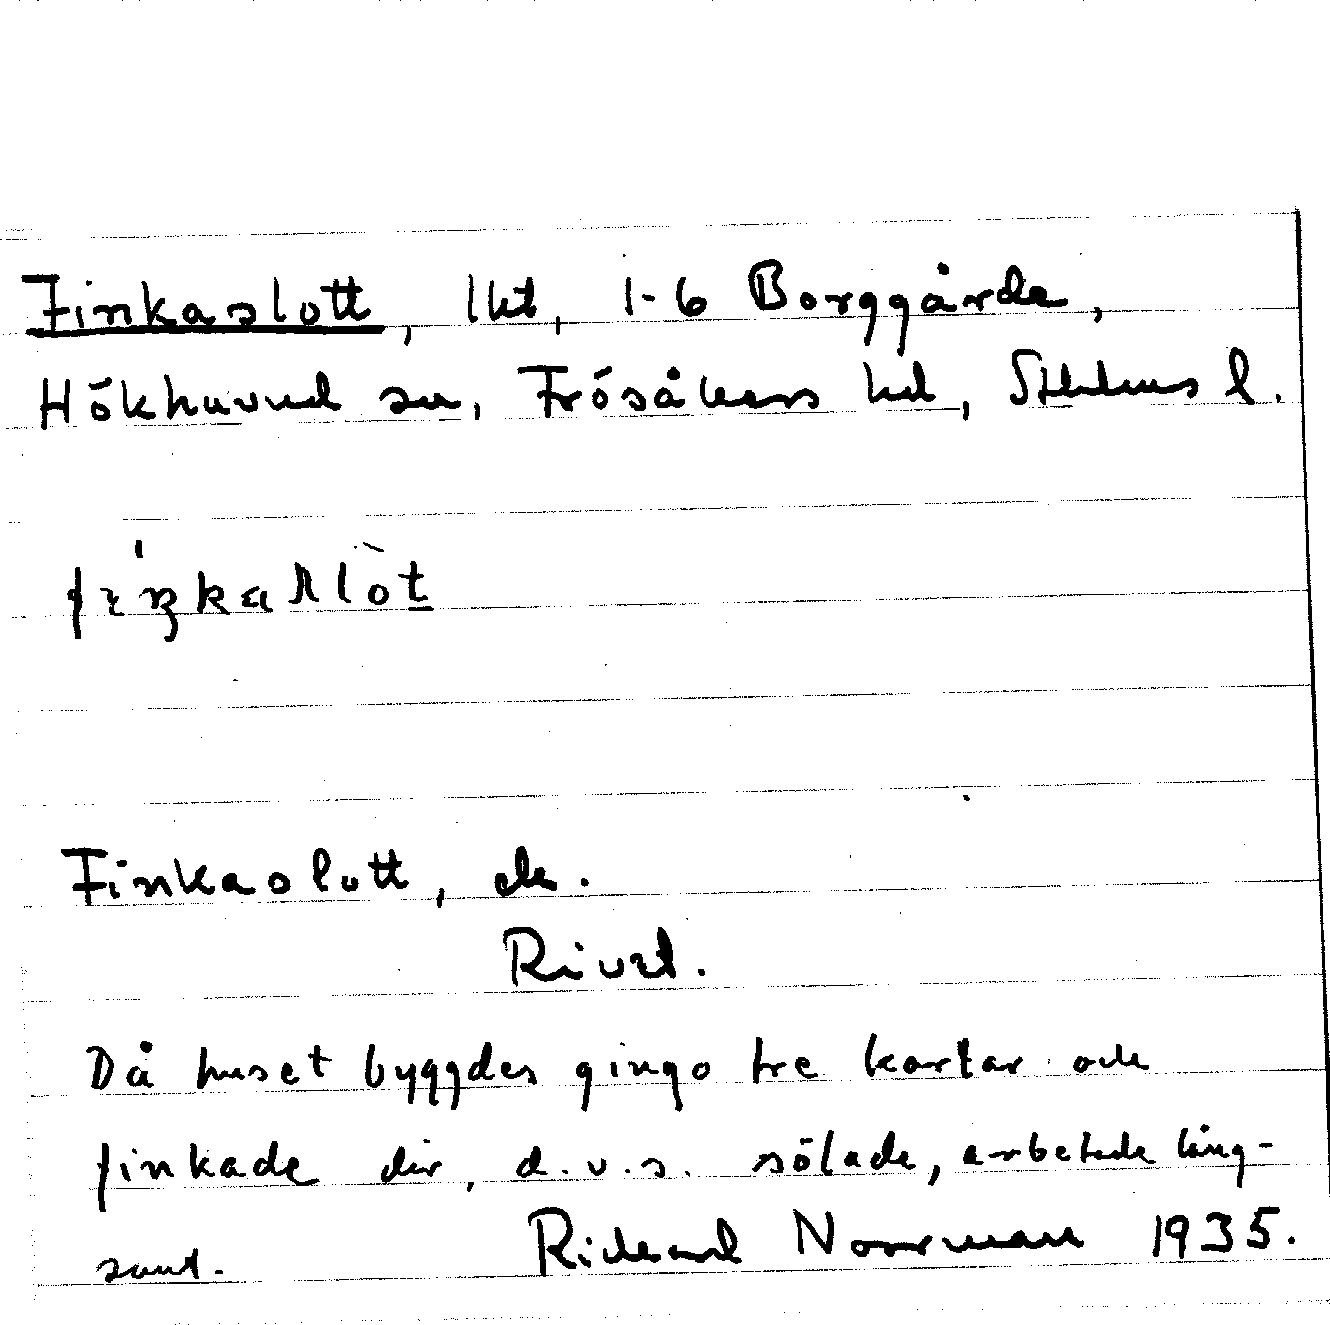 Finkaslott, lht, 1-6 Borggårde,
Hökhuvud sn, Frösåkers hd, Sthlms l.
Finkaslott, de.
Rivet.
Då huset byggdes gingo tre kartar och
finkade där, d.v.s. sölade, arbetade lång-
samt. Richard Norrman 1935.